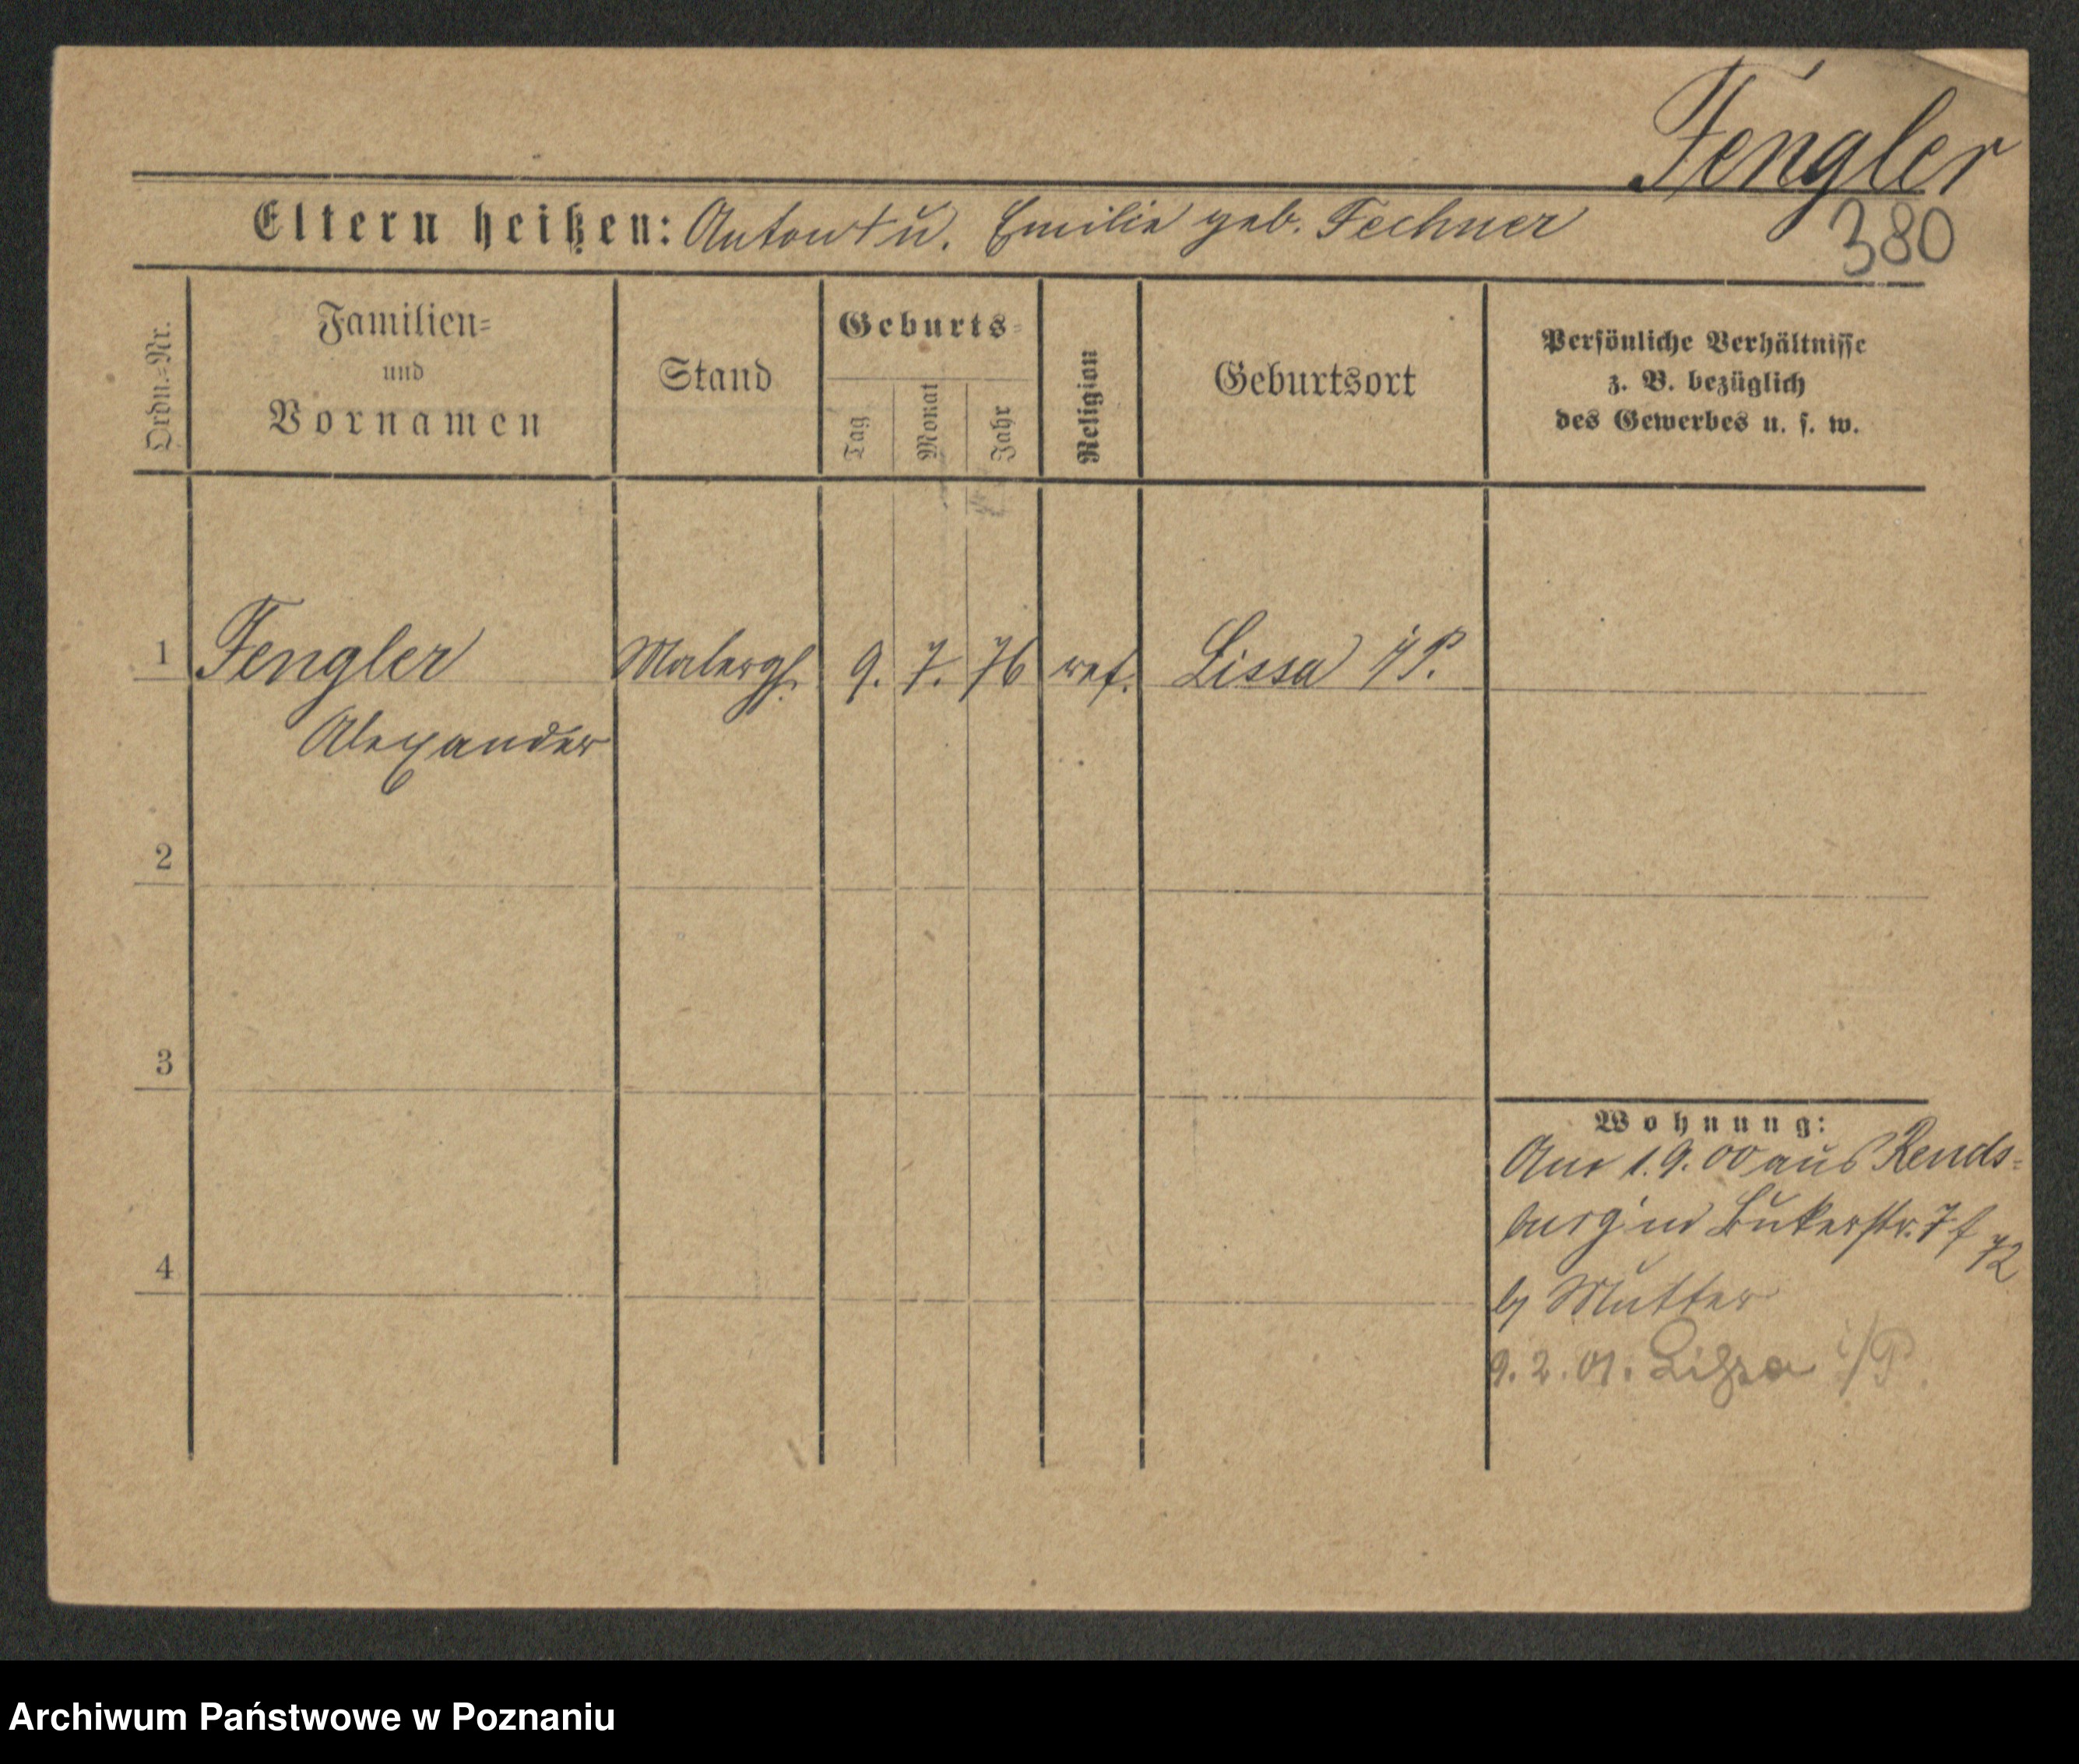 Fengler
380
Eltern heißen: Anton + u. Emilie geb. Fechner
Ordn.-Nr.
Familien-
und
Vornamen
Stand
Geburts-
Tag
Monat
Jahr
Religion
Geburtsort
Persönliche Verhältnisse
z. B. bezüglich
des Gewerbes u. s. w.
1 Fengler Malergh. 9. 7. 76 ref. Lissa i/P.
Alexander
2
3
4
Wohnung:
1.9.00 aus Rends-
burg in Bukerstr. 7
72
b/ Mutter
9.2.01. Lissa i/P.
Archiwum Państwowe w Poznaniu